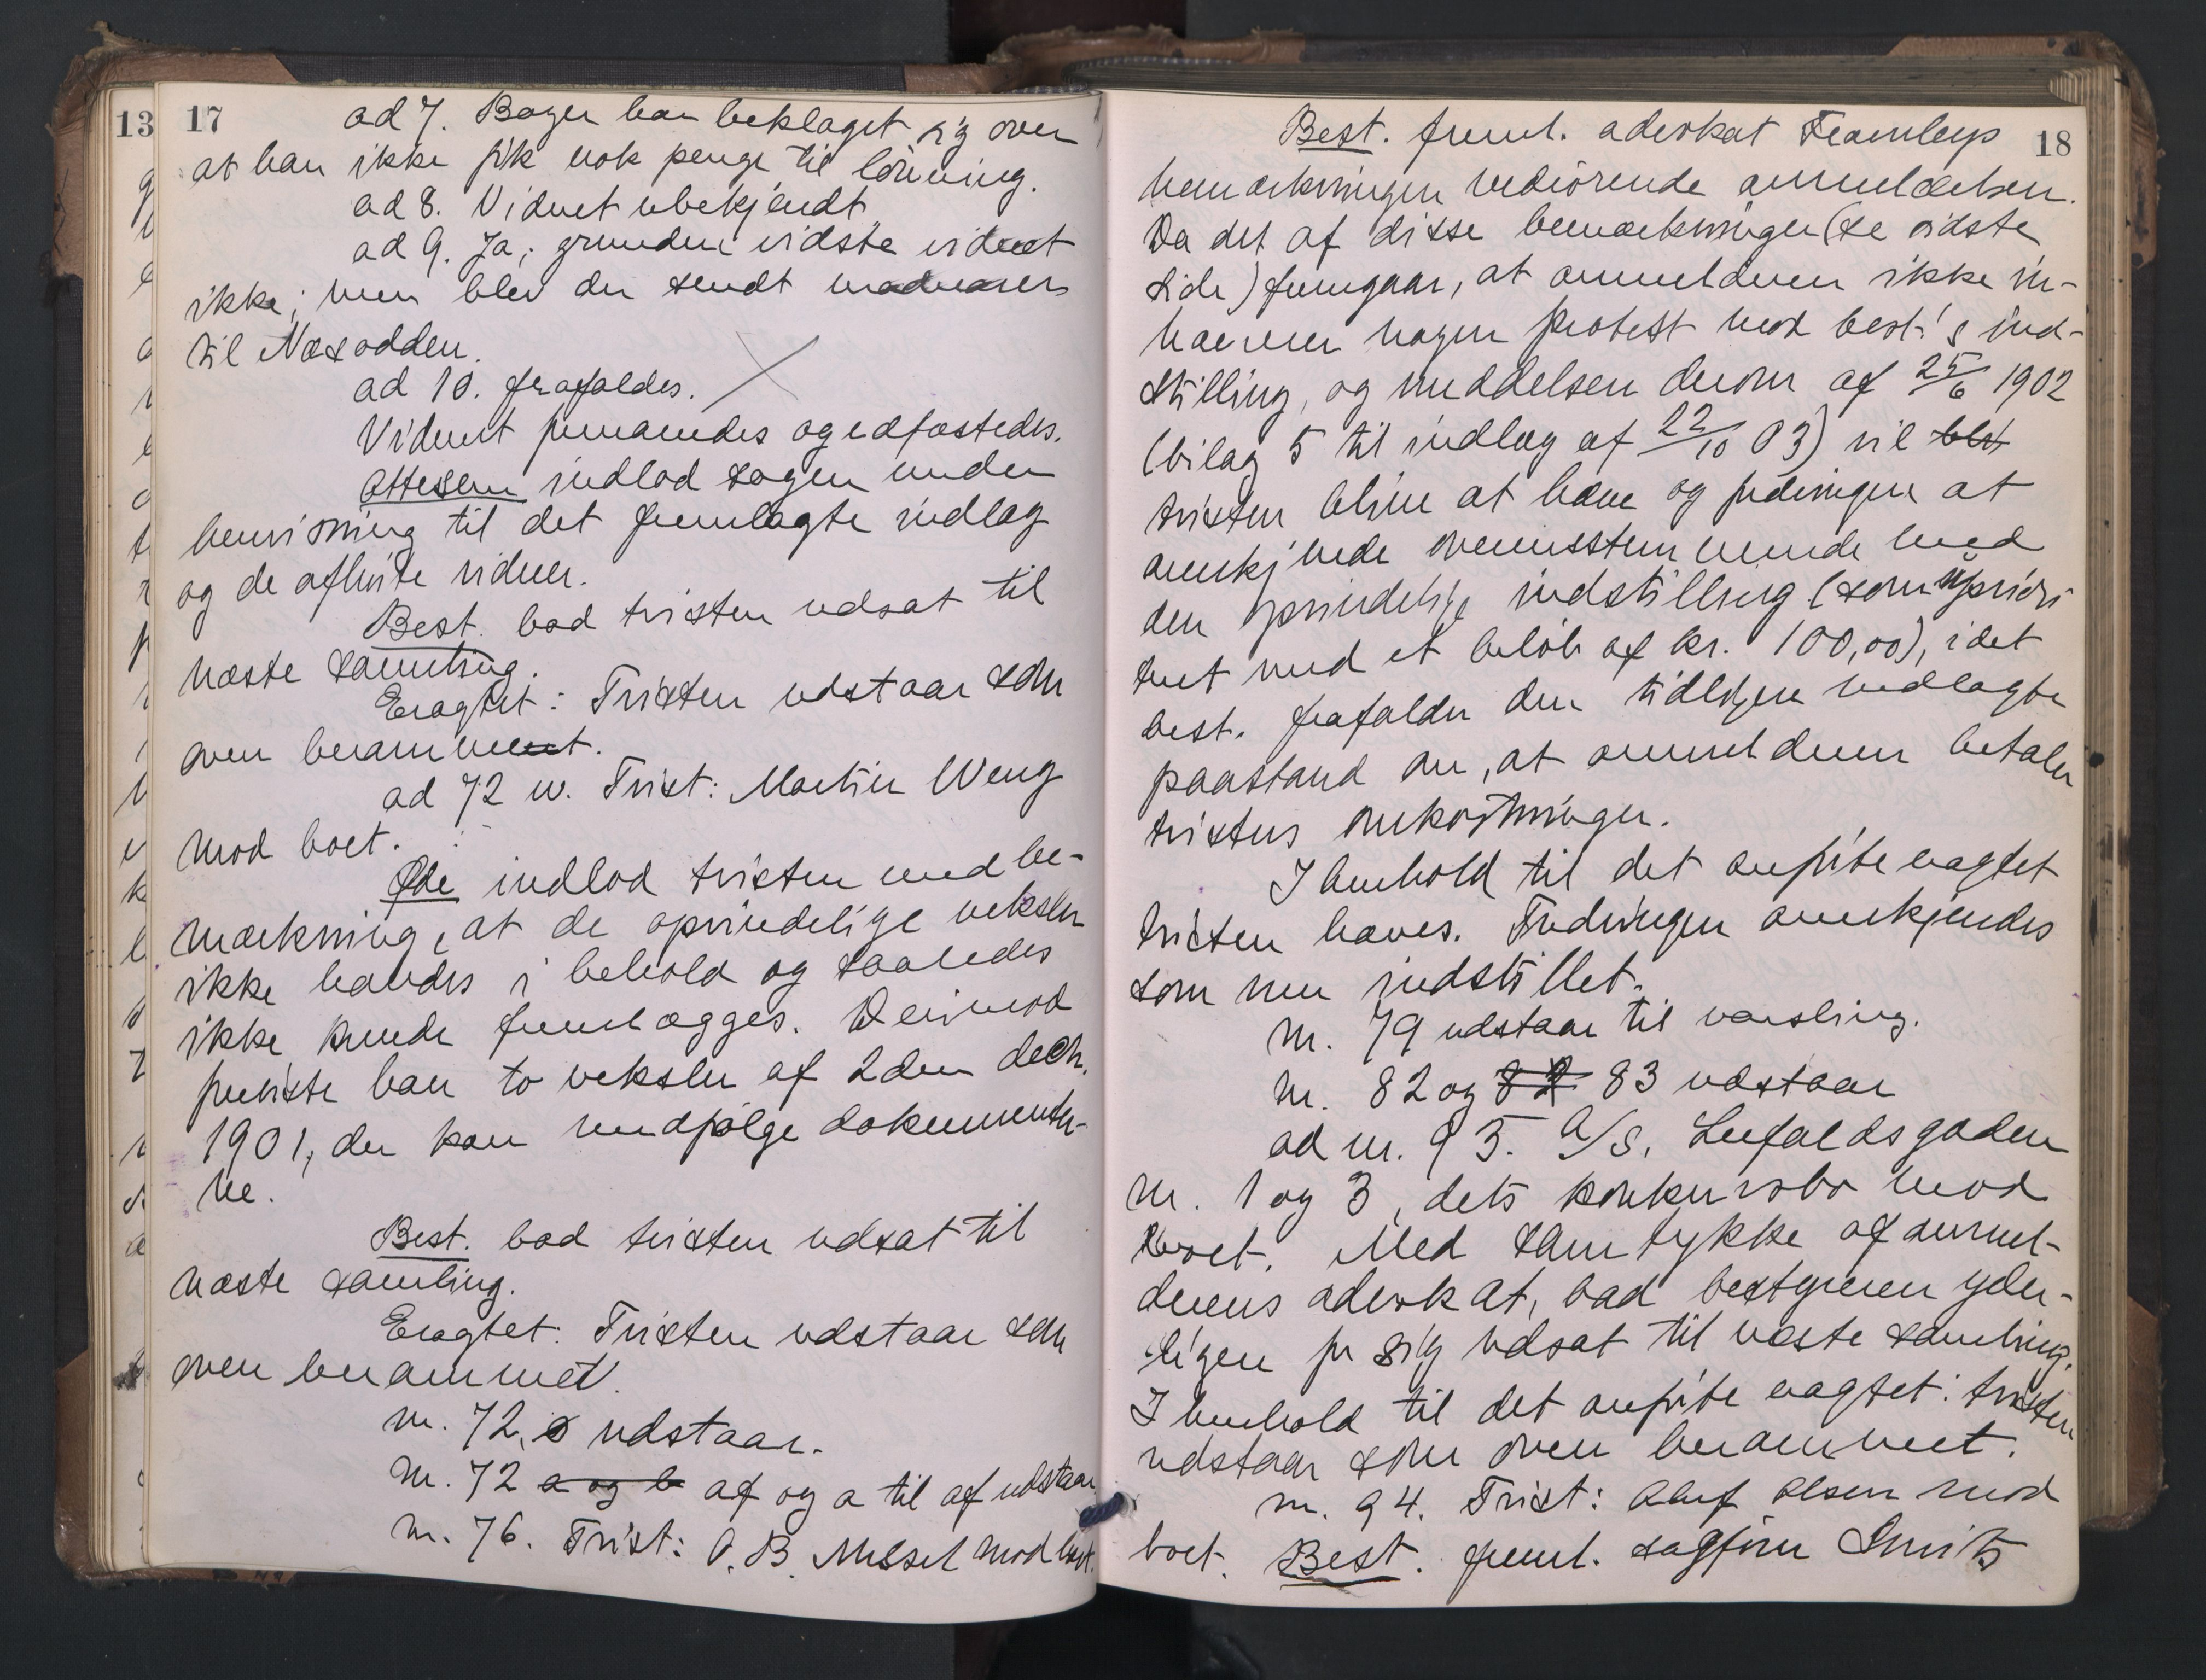 17
ad 7. Bager har beklaget sig over
at han ikke fik nok penge til lönning.
ad 8. Vidnet ubekjendt
ad 9. Ja; grunden vidste vidnet
ikke; men blev der sendt madvarer
til Næsodden.
ad 10. frafaldes.
Vidnet fremandes og edfæstedes.
indlod sagen under
henvisning til det fremlagte indlæg
og de afhörte vidner.
Best. bad tvisten udsat til
næste samling.
Eragtet: Tvisten udstaar som
oven berammet.
ad 72 w. Tvist: Martin Weng
mod boet.
Øde indlod tvisten med be-
mærkning, at de oprindelige veksler
ikke havdes i behold og saaledes
ikke kunde fremlægges. Derimod
foreviste han to veksler af 2den decbr.
1901, der kan medfølge dokumenter-
ne.
Best. bad tvisten udsat til
næste samling.
Eragtet: Tvisten udstaar som
oven berammet.
nr. 72, ø udstaar.
Nr. 72 a og b af og a til af udstaar
Nr. 76. Tvist: A. B. mod boet.
18
Best. freml. advokat
bemærkninger vedrörende anmeldelsen.
Da det af disse bemærkninger (se sidste
side) fremgaar, at anmelderen ikke in-
haererer nogen protest mod best.'s ind-
stilling, og meddelsen derom af 25/6 1902
(bilag 5 til indlæg af 22/10 03) vil blst
tvisten blive at hæve og fordringen at
anerkjende overensstemmende med
den oprindelige indstilling (som upriori-
tert med et belöb af kr. 100,00), idet
best. frafalder den tidligere nedlagte
paastand om, at anmelderen betaler
tvistens omkostninger.
I henhold til det anförte eragtet
tvisten hæves. Fordringen anerkjendes
som nu indstillet.
Nr. 79 udstaar til varsling.
Nr. 82 og 82 83 udstaar
ad nr. 93. A/S. Leufaldsgaden
nr. 1 og 3, dets konkursbo mod
boet. Med samtykke af anmel-
derens advokat, bad bestyreren yder-
ligere for sig udsat til næste samling.
I henhold til det anförte eragtet: tvisten
udstaar som oven berammet.
nr. 94. Tvist: Oluf Olsen mod
boet. Best. freml. sagförer Smits